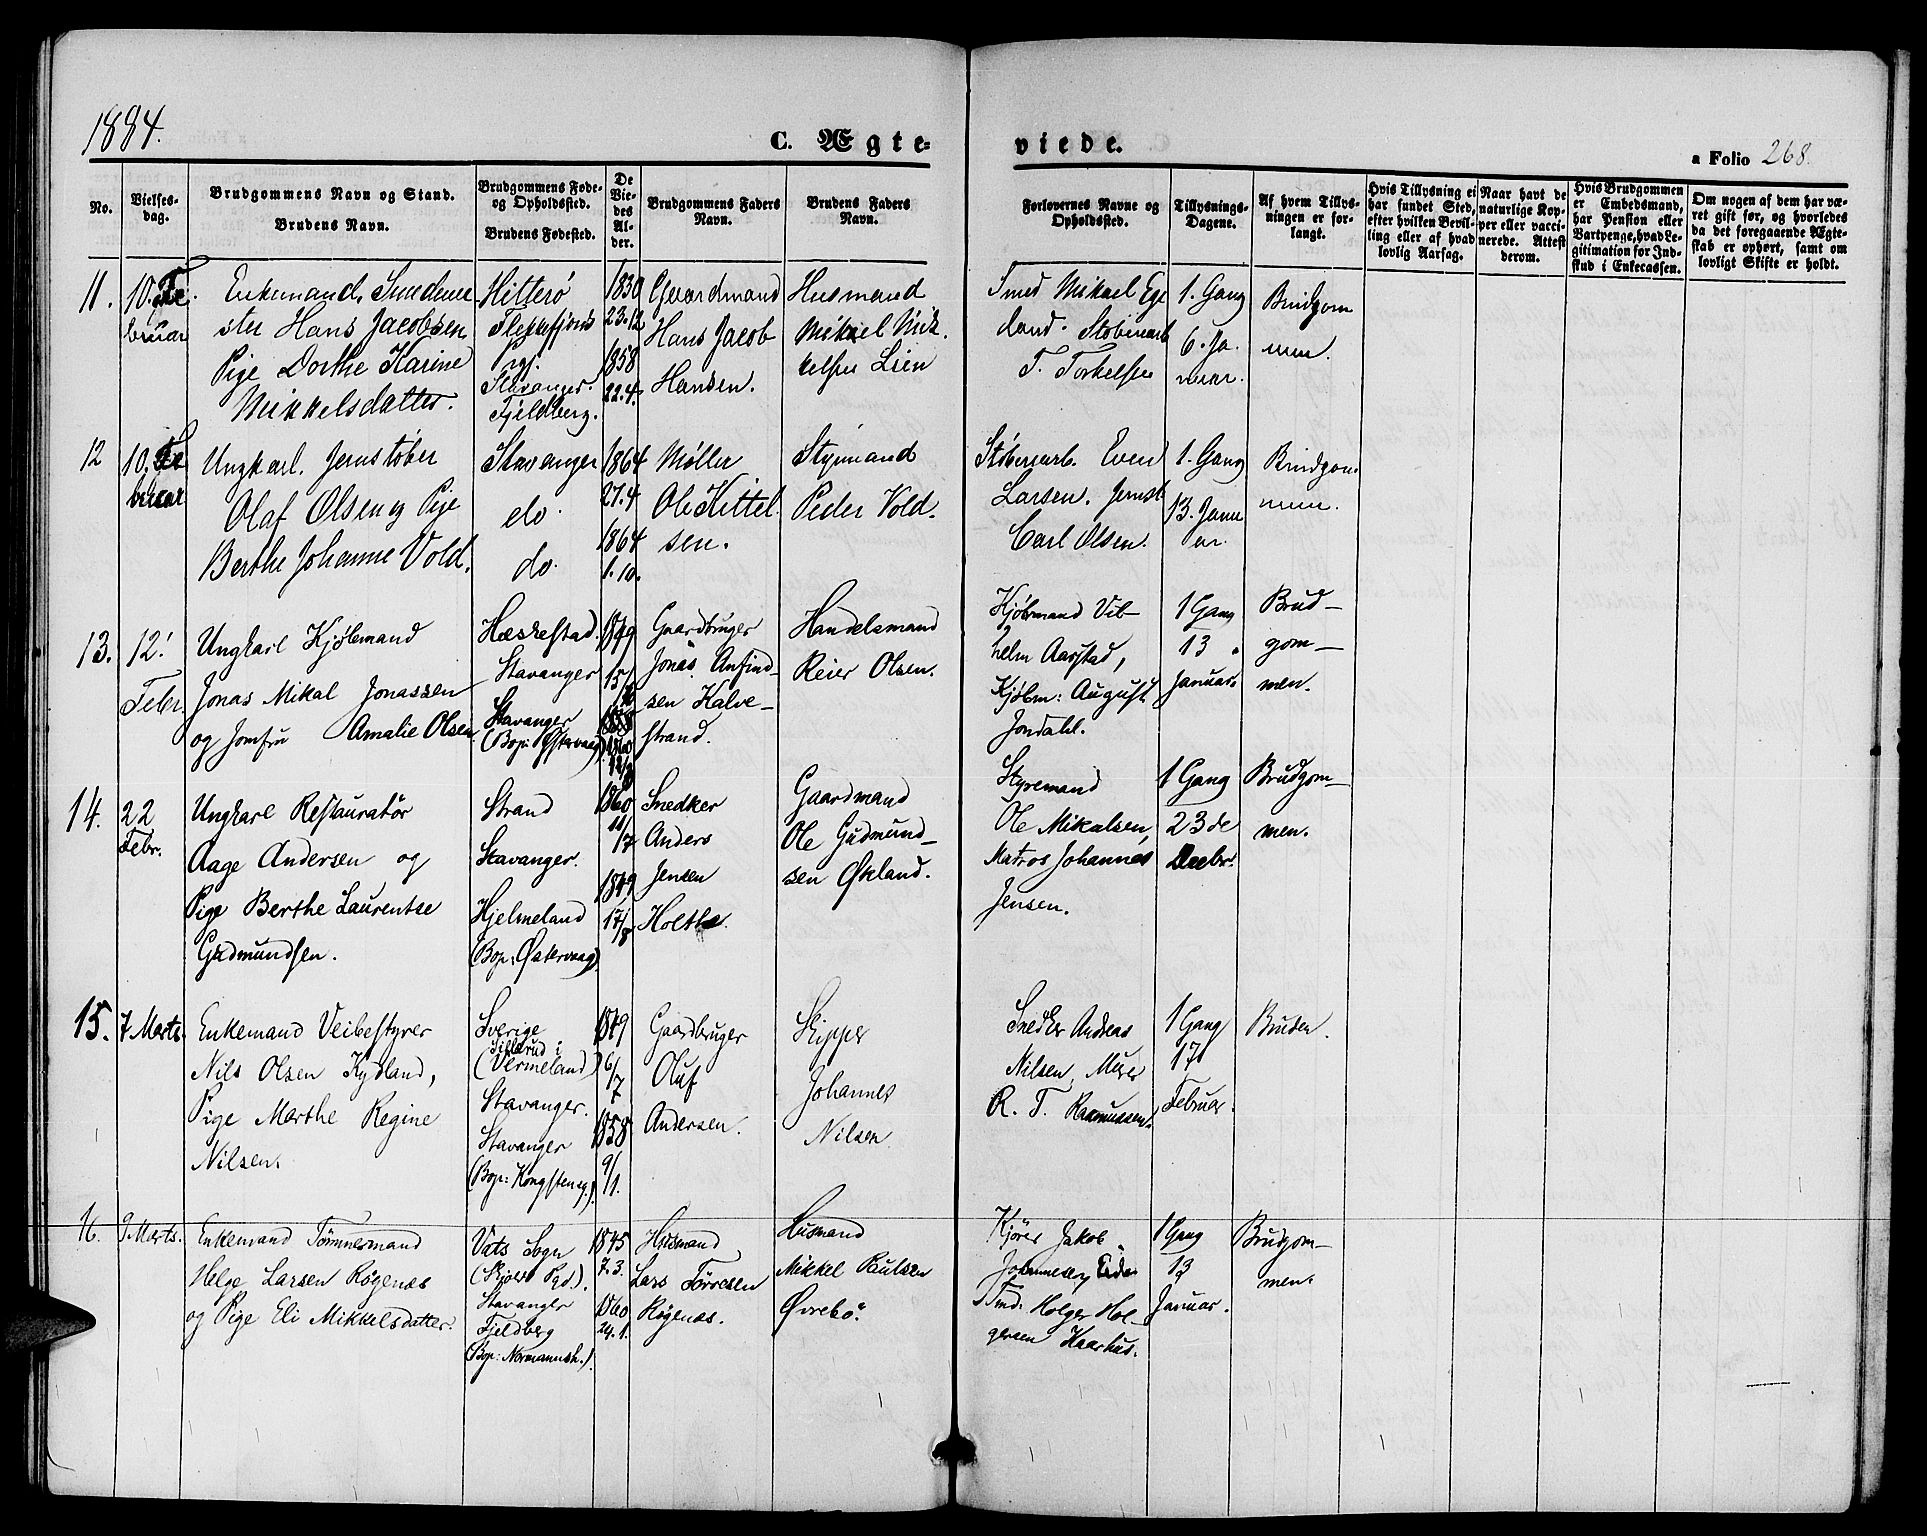 1884.
C. Ægte-
viede.
a Folio 268.
No.
Vielses-
dag.
Brudgommens Navn og Stand.
Brudens Navn.
Brudgommens Føde-
og Opholdssted.
Brudens Fødested.
De
Vie-
des
Al-
der.
Brudgommens Faders
Navn.
Brudens Faders
Navn.
Forlovernes Navne og
Opholdssted.
Tillysnings-
Dagene.
Af hvem Tillys-
ningen er for-
langt.
Hvis Tillysning ei
har fundet Sted,
efter hvilken Bevil-
ling eller af hvad
lovlig Aarsag.
Naar havt de
naturlige Kop-
per eller vacci-
nerede. Attest
derom.
Hvis Brudgommen
er Embedsmand,
har Pension eller
Vartpenge, hvad Le-
gitimation for Ind-
skud i Enkecassen.
Om nogen af dem har væ-
ret gift før, og hvorledes
da det foregaaende Ægte-
skab er ophørt, samt om
lovligt Skifte er holdt.
11.
10. Fe
bruar
Enkemand,
ster Hans Jacobsen
Pige Dorthe Karine
Mikkelsdatter.
Hitterø
Flekkefjords
Pgj.
Stavanger.
Fjeldberg.
1830
23.12
1858
22.4.
Gaardmand
Hans Jacob
Hansen.
Husmand
Mikael Mik
kelsen Lien
Smed Mikael Ege
land. Støberiarb
T. Torkelsen
1. Gang
6. Ja
nuar.
Brudgom
men.
12
10. Fe
bruar
Ungkarl. Jernstøber
Olaf Olsen og Pige
Berthe Johanne Vold.
Stavanger
do.
do.
1864
27.4
1864
1.10.
Møller
Ole Kittel
sen.
Styrmand
Peder Vold.
Støberiarb. Even
Larsen. Jernst
Carl Olsen.
1. Gang
13. Janu
ar.
Brudgom
men.
13.
12.
Febr.
Ungkarl Kjøbmand
Jonas Mikal Jonassen
og Jomfru Amalie Olsen
Hæskestad.
Stavanger
Stavanger
(Bop: Østervaag)
1849
15/
1860
12/8
Gaardbruger
Jonas Anfind-
sen Kalve-
strand.
Handelsmand
Reier Olsen.
Kjøbmand Vil-
helm Aarstad,
Kjøbm: August
Jondahl.
1 Gang
13
Januar.
Brud-
gom-
men.
14.
22
Febr.
Ungkarl Restauratør
Aage Andersen og
Pige Berthe Laurentse
Gudmundsen.
Strand
Stavanger.
Hjelmeland
(Bop: Østervaag)
1860
11/7
1849
17/8
Snedker
Anders
Jensen
Holthe.
Gaardmand
Ole Gudmund-
sen Økland.
Styremand
Ole Mikalsen,
Matros Johannes
Jensen.
1 Gang
23de
Decbr.
Brudgom-
men.
15.
7 Marts.
Enkemand Veibestyrer
Nils Olsen Kydland,
Pige Marthe Regine
Nilsen.
Sverige
Sillerud i
(Vermeland)
Stavanger.
Stavanger
(Bop: Kongstensg.).
1849
6/7
1858
9/1.
Gaardbruger
Oluf
Andersen.
Skipper
Johannes
Nilsen
Snedker Andreas
Nilsen, Murer
R. T. Rasmussen.
1 Gang
17
Februar.
Bruden.
16.
9 Marts.
Enkemand Tømmermand
Helge Larsen Røgenæs
og Pige Eli Mikkelsdatter.
Vats Sogn
(Skjold Pgd).
Stavanger
Fjeldberg
(Bop: Normannsh.).
1845
7.3.
1860
24.1.
Husmand
Lars Tørresen
Røgenæs.
Husmand
Mikkel Paulsen
Øvrebø.
Kjører Jakob
Johannesen Eide
Tmd: Holger Hol-
gersen Haarhus.
1 Gang
13
Januar.
Brudgom-
men.